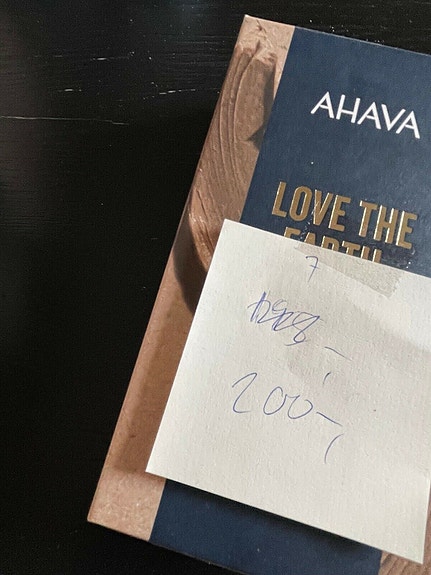 AHAVA
LOVE THE
EARTH
7
200-,